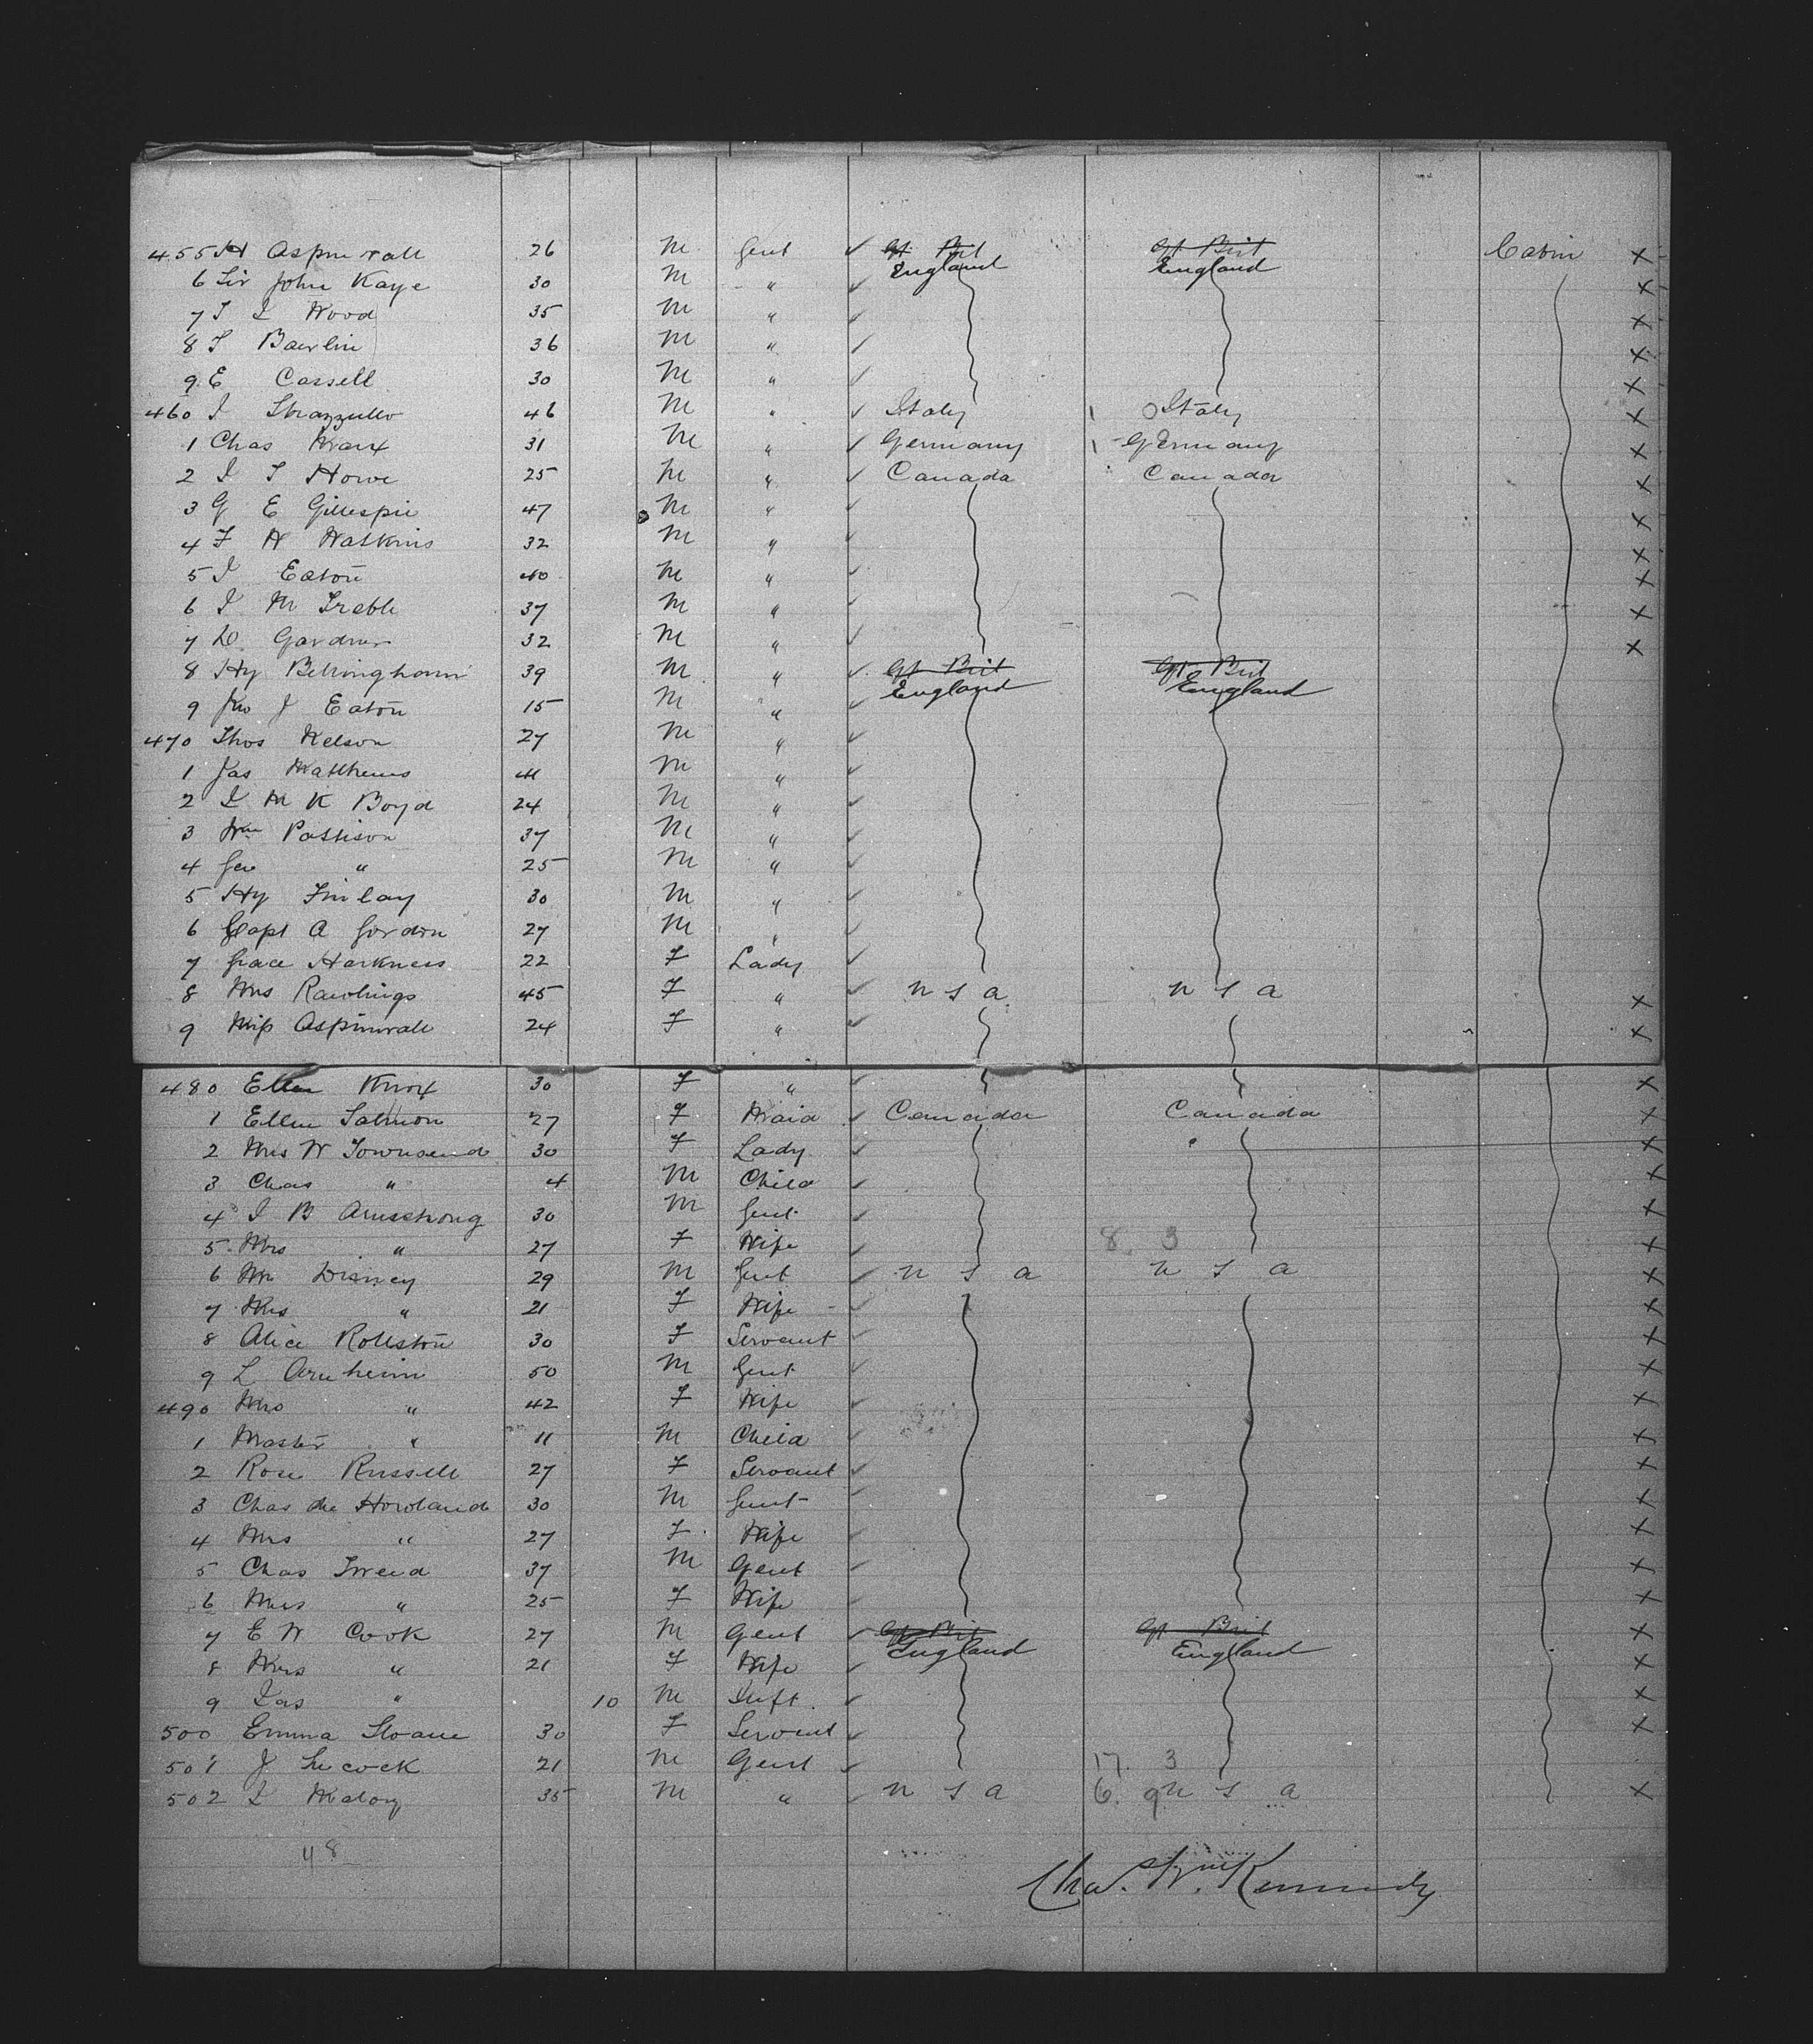 455 H Aspinwall 26 M Gent ✓ Gt Brit Gt Brit Cabin X
England England
6 Sir John Kaye 30 M " ✓ X
7 J L Wood 35 M " ✓ X
8 J Baerlin 36 M " ✓ X
9 E Cassell 30 M " ✓ X
460 J Strazzullo 46 M " ✓ Italy Italy X
1 Chas 31 M " ✓ Germany Germany X
2 J S Howe 25 M " ✓ Canada Canada X
3 G E Gillespie 47 M " ✓ X
4 F W Watkins 32 M " ✓ X
5 J Eaton 40 M " ✓ X
6 J M Treble 37 M " ✓ X
7 D Gardner 32 M " ✓ X
8 Hy Bellingham 39 M " ✓ Gt Brit Gt Brit
England England
9 Jno J Eaton 15 M " ✓
470 Thos Nelson 27 M " ✓
1 Jas Matthews 41 M " ✓
2 J M K Boyd 24 M " ✓
3 Wm Pattison 37 M " ✓
4 Geo " 25 M " ✓
5 Hy Finlay 30 M " ✓
6 Capt A Gordon 27 M " ✓
7 Grace Harkness 22 F Lady ✓
8 Mrs Rawlings 45 F " ✓ U S A U S A X
9 Miss Aspinwall 24 F " ✓ X
480 Ellen Knox 30 F " ✓ X
1 Ellen Salmon 27 F Maid ✓ Canada Canada X
2 Mrs W Townsend 30 F Lady ✓ X
3 Chas " 4 M Child ✓ X
4 J B Armstrong 30 M Gent ✓ X
5 Mrs " 27 F Wife ✓ 8. 3 X
6 Mr Disney 29 M Gent ✓ U S A U S A X
7 Mrs " 21 F Wife ✓ X
8 Alice Rollston 30 F Servant ✓ X
9 L Arnheim 50 M Gent ✓ X
490 Mrs " 42 F Wife ✓ X
1 Master " 11 M Child ✓ X
2 Rose Russell 27 F Servant ✓ X
3 Chas de Howland 30 M Gent ✓ X
4 Mrs " 27 F Wife ✓ X
5 Chas Tweed 37 M Gent ✓ X
6 Mrs " 25 F Wife ✓ X
7 E W Cook 27 M Gent ✓ Gt Brit Gt Brit X
England England
8 Mrs " 21 F Wife ✓ X
9 Jas " 10 M Inft ✓ X
500 Emma Sloane 30 F Servant ✓ X
501 J 21 M Gent ✓ 17. 3
502 J 35 M " ✓ U S A 6. 9 U S A X
48
Chas. W. Kennedy